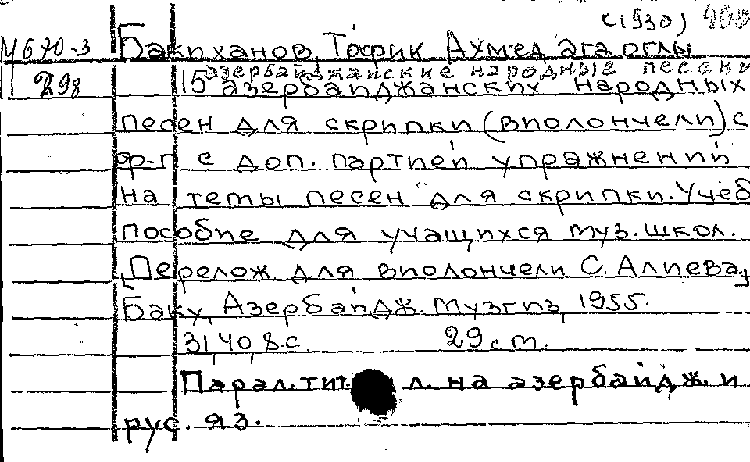 с(1930)
М 670-3 Бакиханов, Тофик Ахмед ага оглы
азербайджанские народные песени
298 15 азербайджанских народных
песен для скрипки (виолончели) с
ф-п с доп. партией упражнений
на темы песен для скрипки. Учеб.
пособие для учащихся муз. школ.
[Перелож. для виолончели С. Алиева]
Баку, Азербайдж. Музгиз, 1955.
31, 40, 8 с. 29 см.
Парал. тит. л. на азербайдж. и
рус. яз.